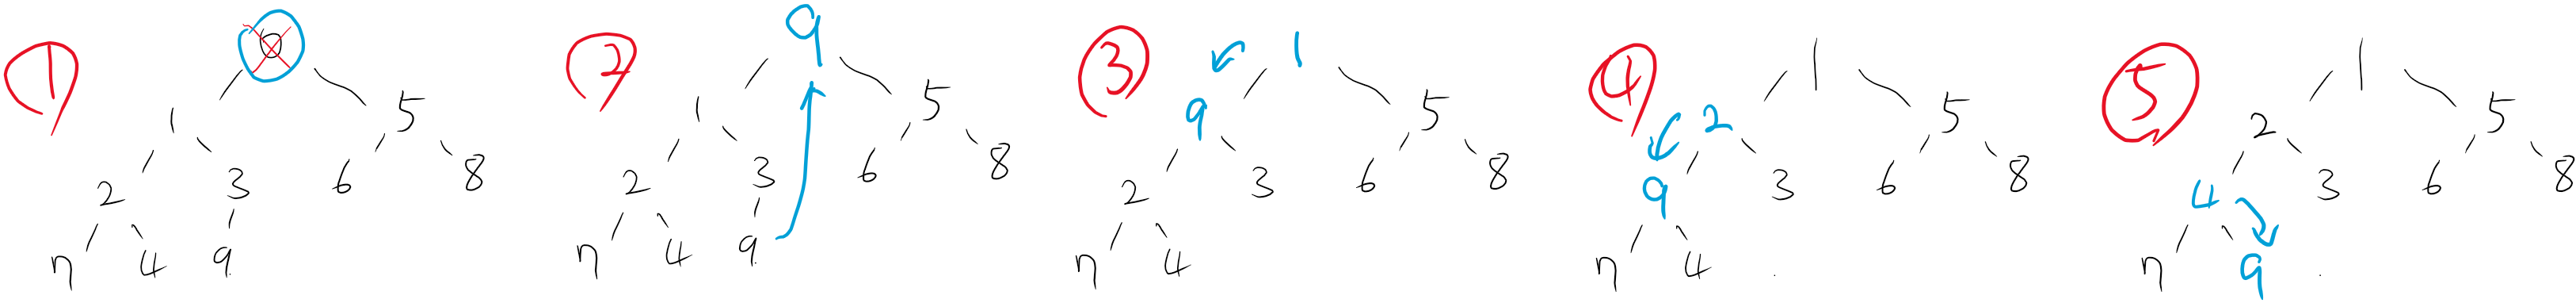 1
0
1 5
2 3 6 8
7 4 9
2
9
1 5
2 3 6 8
7 4 9
3
1
9 5
2 3 6 8
7 4
4
1
2 5
9 3 6 8
7 4
5
1
2 5
4 3 6 8
7 9